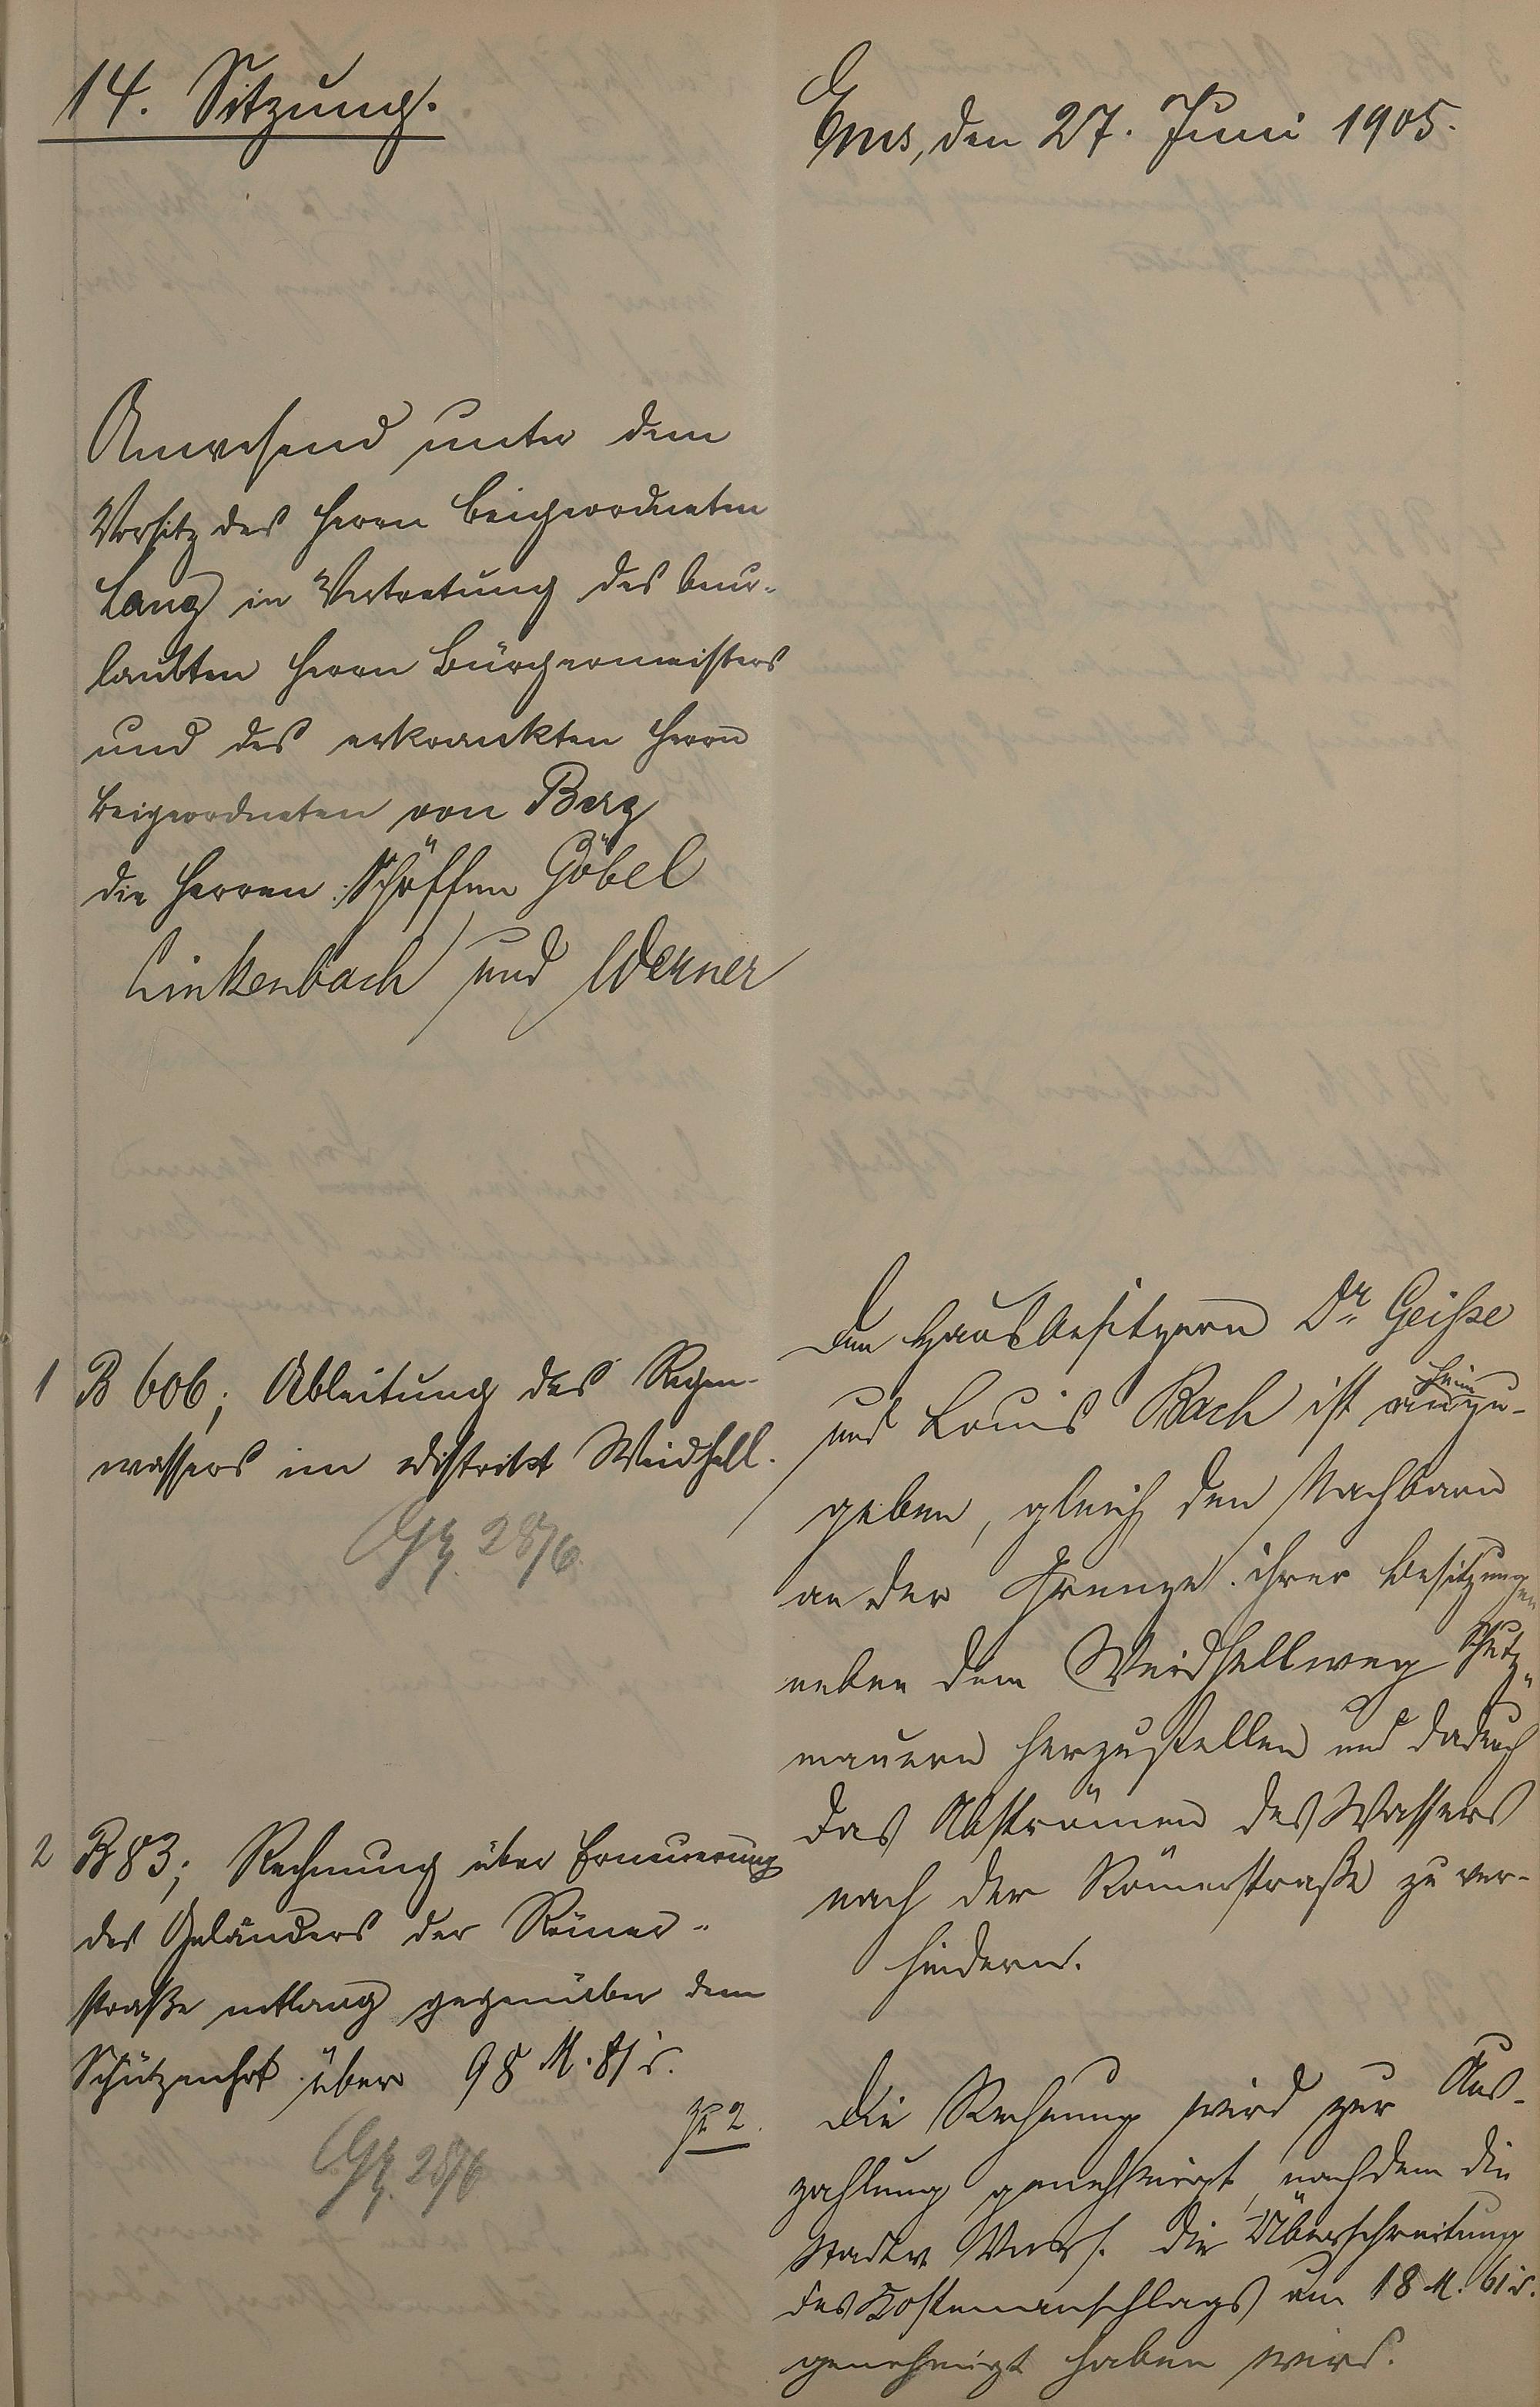 14. Sitzung.
Ems, den 27. Juni 1905.
Anwesend unter dem
Vorsitz des Herrn Beigeordneten
Lang in Vertretung des beur-
laubten Herrn Bürgermeisters
und des erkrankten Herrn
Beigeordneten von Berg
die Herren Schöffen Göbel
Linkenbach und Werner
1 B 606; Ableitung des Regen-
wassers im Distrikt Weidhell.
28/6.
Den Hausbesitzern Dr. Geisse
und Louis Bach ist anheim zu-
geben, gleich den Nachbarn
an der Grenze ihrer Besitzungen
neben dem Weidhellweg Schutz-
mauern herzustellen und dadurch
das Abströmen des Wassers
nach der Römerstraße zu ver-
hindern.
2 B 83; Rechnung über Erneuerung
des Geländers der Römer-
straße entlang gegenüber dem
Schützenhof über 98 M. 81 d.
28/6
zu 2. Die Rechnung wird zur Aus-
zahlung genehmigt, nachdem die
Stadtv. Vers. die Überschreitung
des Kostenanschlags um 18 M. 61 d.
genehmigt haben wird.